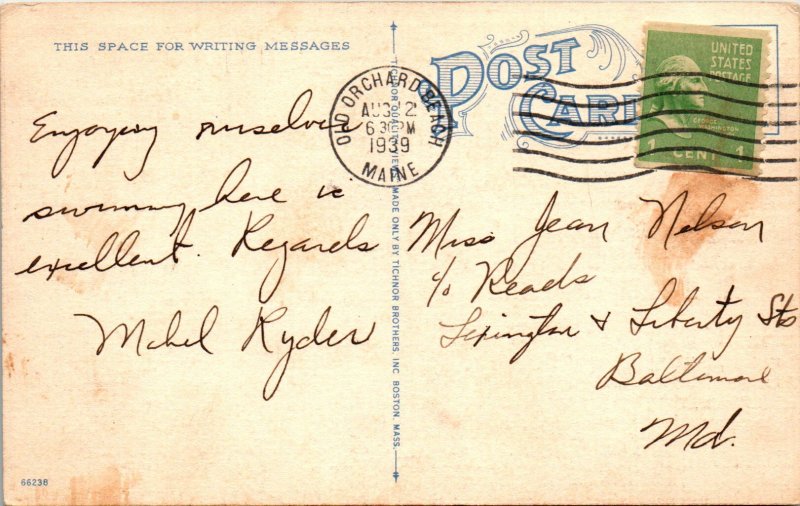 THIS SPACE FOR WRITING MESSAGES
POST CARD
UNITED
STATES
POSTAGE
GEORGE
WASHINGTON
1 CENT 1
OLD ORCHARD BEACH
AUG 2
6 30 PM
1939
MAINE
Enjoying ourselves
swimming here is
excellent. Regards
Mabel Ryder
TICHNOR QUALITY VIEWS MADE ONLY BY TICHNOR BROTHERS, INC. BOSTON, MASS.
Miss Jean Nelson
c/o Reads
Lexington & Liberty Sts
Baltimore
Md.
66238